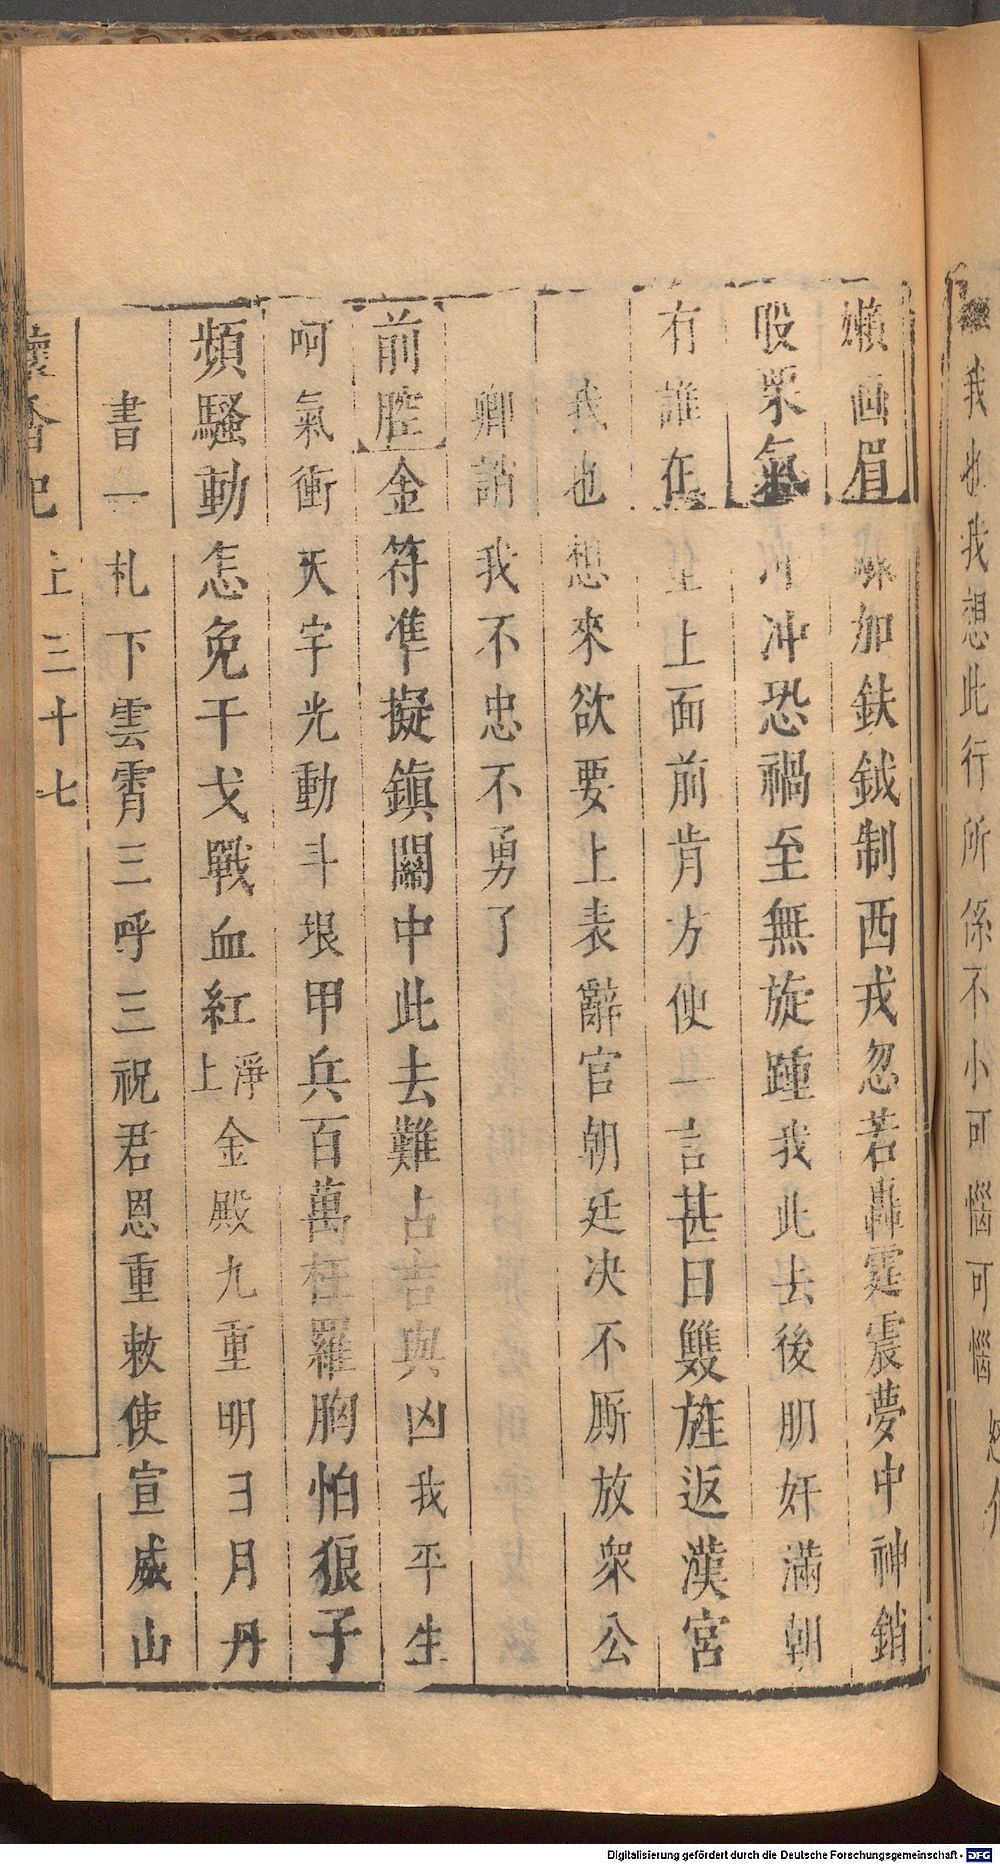 我也我想此行所係不小可惱可惱
嬾画眉 加鈇鉞制西戎忽若轟霆震夢中神銷
股眾氣 冲恐禍至無旋踵我此去後朋奸滿朝
有誰在 上面前肯方便一言甚日雙旌返漢宮
我也想來欲要上表辭官朝廷决不厮放衆公
卿誚我不忠不勇了
前腔金符準擬鎮關中此去難占吉與凶我平生
呵氣衝天宇光動斗垠甲兵百萬枉羅胸怕狼子
頻騷動怎免干戈戰血紅淨上金殿九重明日月丹
書一札下雲霄三呼三祝君恩重敕使宣威山
懷香記 上三十七
Digitalisierung gefördert durch die Deutsche Forschungsgemeinschaft - DFG